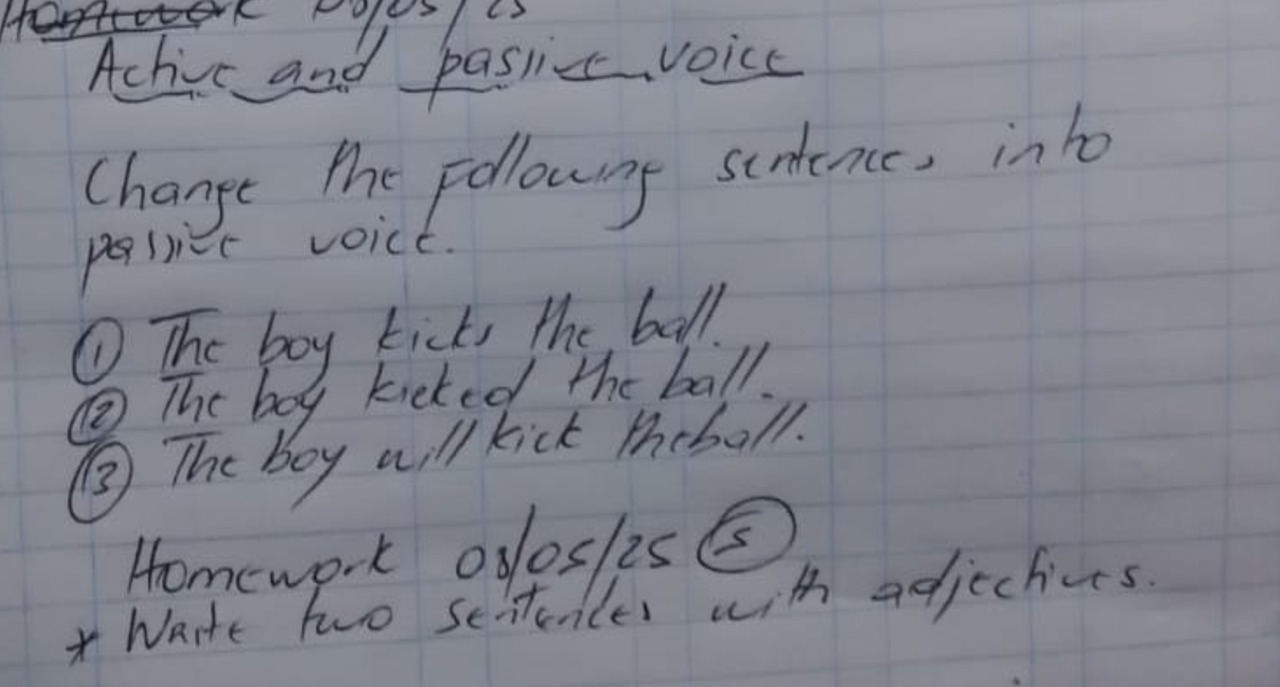 Homework 08/05/25
Active and passive voice
Change the following sentences into
passive voice.
① The boy kicks the ball.
② The boy kicked the ball.
③ The boy will kick the ball.
Homework 08/05/25 ⑤
* Write two sentences with adjectives.